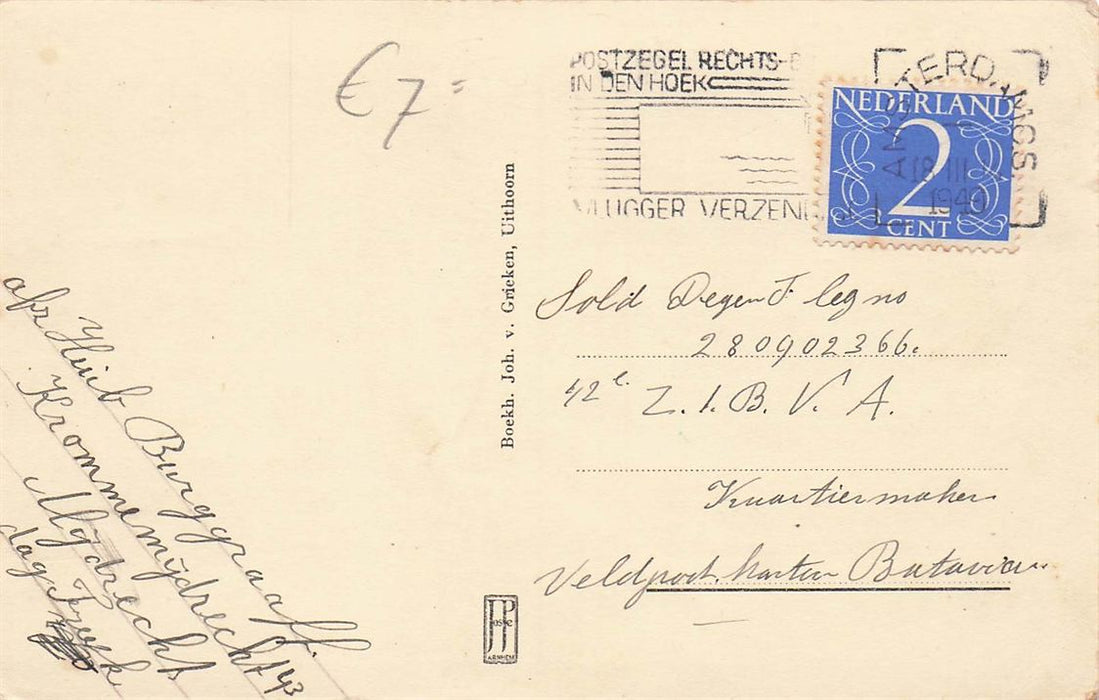 € 7=
POSTZEGEL RECHTS-B
IN DEN HOEK
VLUGGER VERZEND
AMSTERDAM CS
18 III
1949
NEDERLAND
2
CENT
Sold Degen F. leg no
280902366.
42e Z.I.B.V.A.
Kwartiermaker
Veldpost kanten Batavia
Boekh. Joh. v. Grieken, Uithoorn
afz Huib Burggraaff.
Krommemijdrecht 43
Mijdrecht
dag Freek
JosPe
ARNHEM